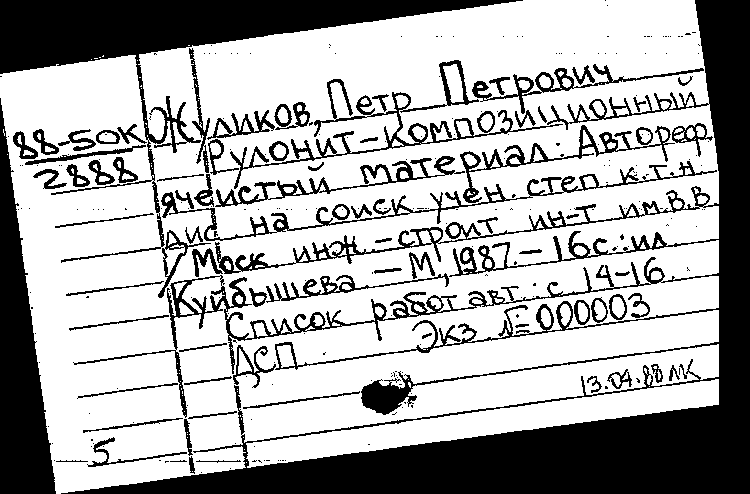 88-50К
2888
Жуликов, Петр Петрович.
Рулонит-композиционный
ячеистый материал: Автореф.
дис на соиск учен. степ к.т.н.
/ Моск инж.-строит ин-т им.В.В
Куйбышева. - М., 1987. - 16с.:ил
Список работ авт: с 14-16.
ДСП. Экз №000003
13.04.88 МК
5.